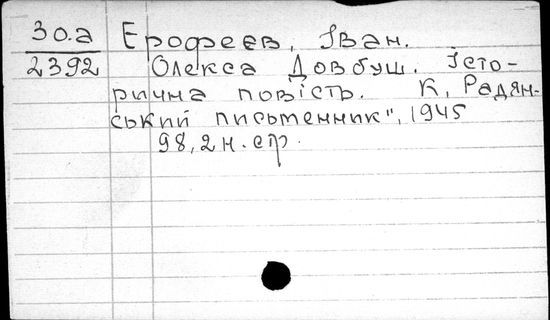 30.а Ерофеєв, Іван.
2392 Олекса Довбуш. Істо-
рична повість. К, Радян-
ський письменник", 1945
98, 2 н. стр.